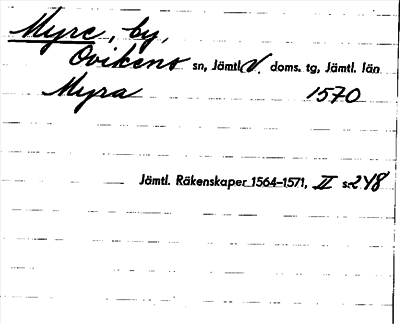 Myre, by,
Ovikens sn, Jämtl. V. doms. tg, Jämtl. län
Myra 1570
Jämtl. Räkenskaper 1564–1571, II s. 248